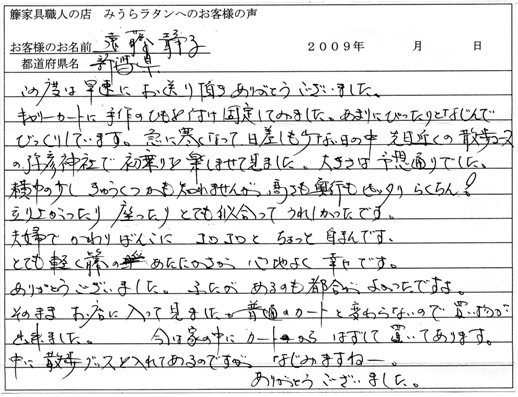 籐家具職人の店 みうらラタンへのお客様の声
お客様のお名前 遠藤 静子 2009年 月 日
都道府県名 新潟県
この度は早速に お送り頂き ありがとうございました。
キャリーカートに 手作のひもを付け固定してみました。あまりにぴったりとなじんで
びっくりしています。急に寒くなって日差しも少ない日の中 先日近くの散歩コース
の弥彦神社で 初乗りを 楽しませて見ました。大きさは予想通りでした。
横巾の少し きゅうくつかも知れませんが、高さも奥行もピッタリ らくちん!
立り上がったり 座ったり とても似合って うれしかったです。
夫婦で かわりばんこに コロコロと ちょっと 自まんです。
とても 軽く 籐の あたたかさが 心地よく 幸せです。
ありがとうございました。 ふたが あるのも都合が よかったですよ。
そのまま お店に 入って見ました。普通のカートと変わらないので 買い物が
出来ました。 今は家の中に カートから はずして 置いてあります。
中に 散歩グッズを入れてあるのですが なじみますねー。
ありがとう ございました。